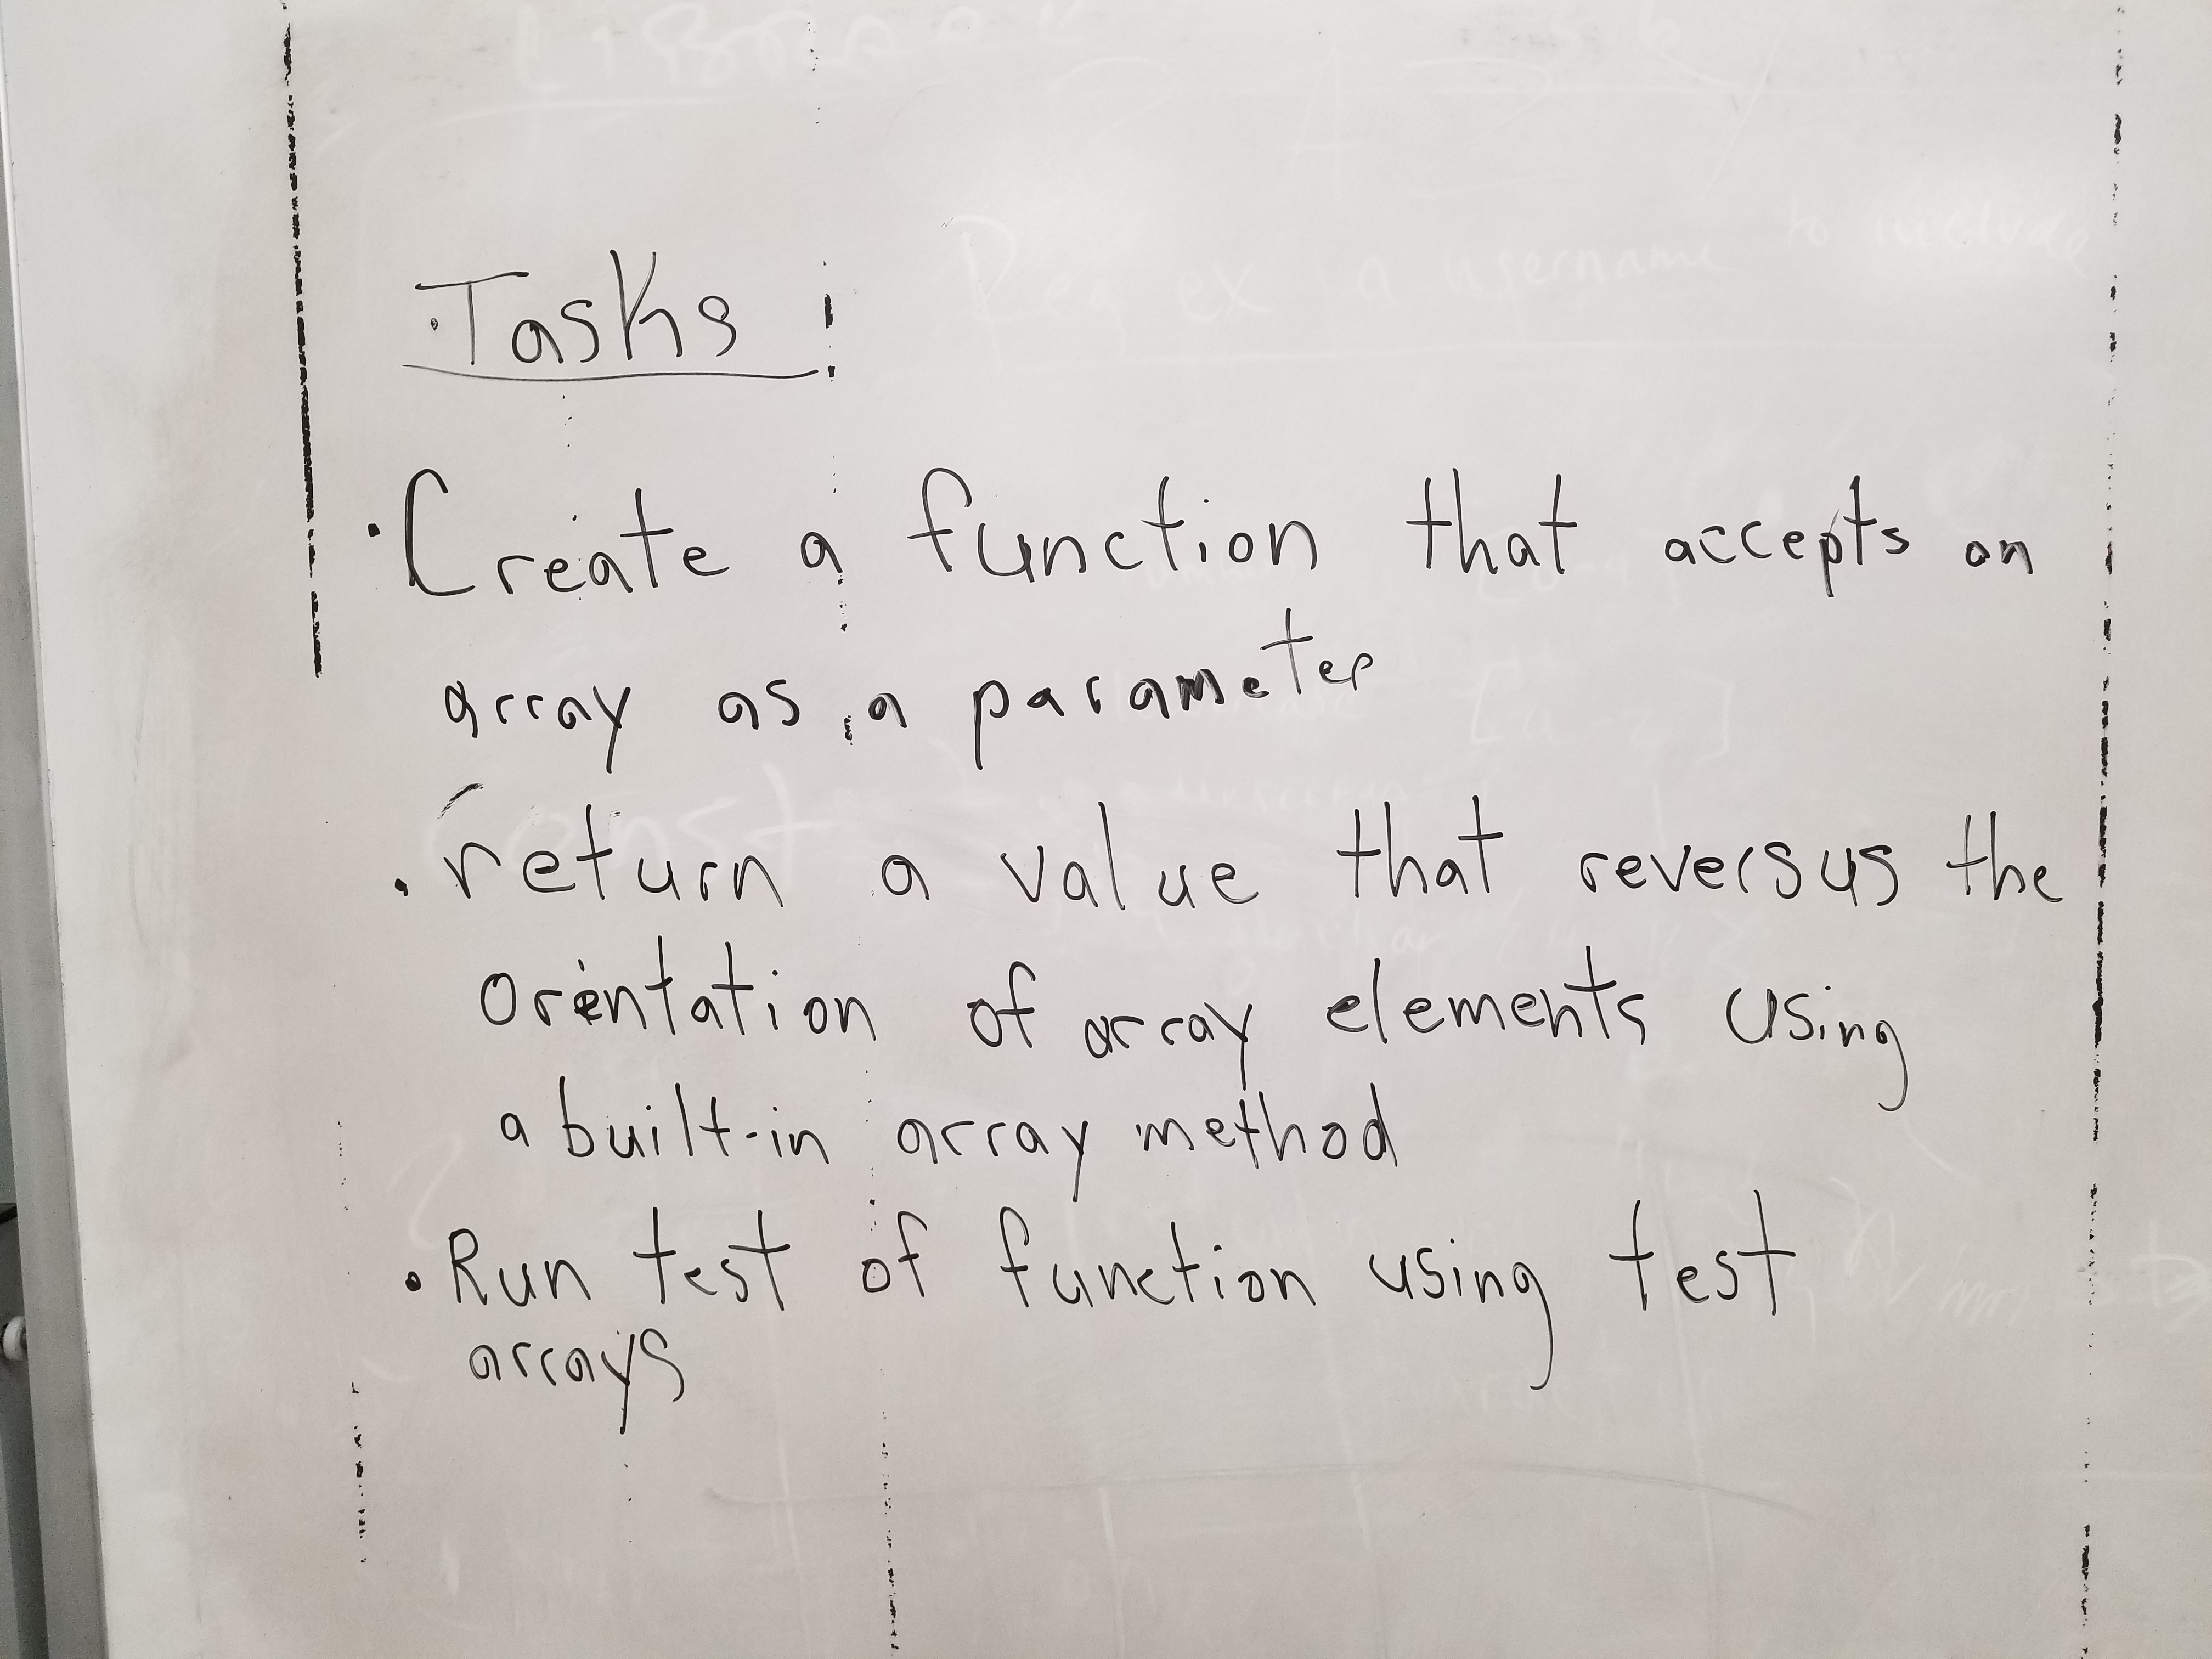 Tasks
• Create a function that accepts an
array as a parameter
• return a value that reversus the
orientation of array elements using
a built-in array method
• Run test of function using test
arrays